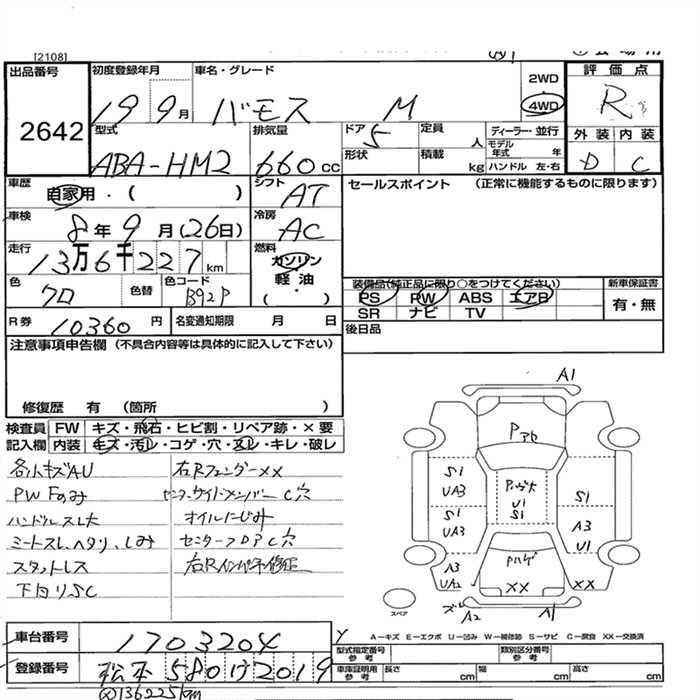 [2108]
出品番号 初度登録年月 車名・グレード 2WD 評価点
2642 19 9月 バモス M 4WD R
型式 排気量 ドア 定員 ディーラー・並行 外装 内装
ABA-HM2 660cc 5 人 モデル年式 年 D C
形状 積載 kg ハンドル 左・右
車歴 自家用・( ) シフト AT セールスポイント (正常に機能するものに限ります)
車検 8年 9月(26日) 冷房 AC
走行 13万6千227km 燃料 ガソリン
軽油・( )
色 クロ 色替 色コード B92P 装備品(純正品に限り○をつけてください) 新車保証書
PS PW ABS エアB 有・無
SR ナビ TV
R券 10360円 名変通知期限 月 日 後日品
注意事項申告欄 (不具合内容等は具体的に記入して下さい)
修復歴 有 (箇所 )
検査員 FW キズ・飛石・ヒビ割・リペア跡・×要
記入欄 内装 キズ・汚レ・コゲ・穴・スレ・キレ・破レ
各小キズAU 右Rフェンダー××
PW Fのみ センターサイドメンバーC穴
ハンドルスレ大 オイルにじみ
シートスレ、ヘタリ、しみ センターフロアC穴
スタットレス 右Rインパネ修正
下回りSC
A1
Pアセ
S1
UA3
S1
UA3
A3
UA2
U1
S1
S1
A3
U1
××
××
A2
A1
スペア
A－キズ E－エクボ U－凹み W－補修跡 S－サビ C－腐食 XX－交換済
車台番号 1703204 型式指定番号 参考 類別区分番号 参考
登録番号 松本 580け2019 車庫証明用 参考 長さ cm 幅 cm 高さ cm
136225km